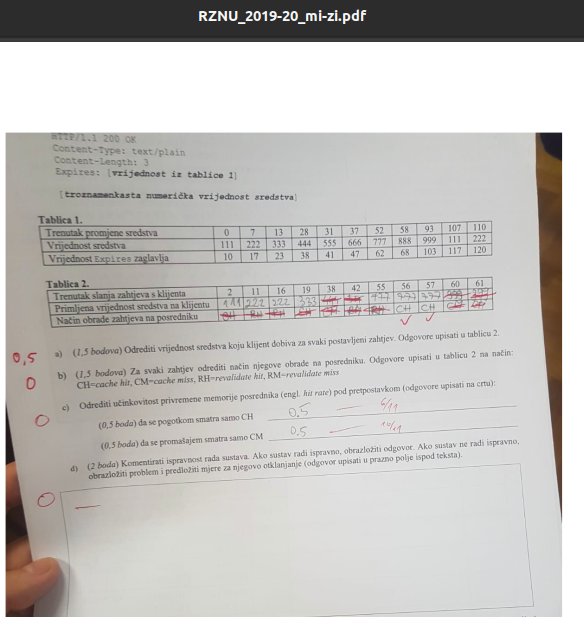 RZNU_2019-20_mi-zi.pdf
HTTP/1.1 200 OK
Content-Type: text/plain
Content-Length: 3
Expires: [vrijednost iz tablice 1]
[troznamenkasta numerička vrijednost sredstva]
Tablica 1.
Trenutak promjene sredstva 0 7 13 28 31 37 52 58 93 107 110
Vrijednost sredstva 111 222 333 444 555 666 777 888 999 111 222
Vrijednost Expires zaglavlja 10 17 23 38 41 47 62 68 103 117 120
Tablica 2.
Trenutak slanja zahtjeva s klijenta 2 11 16 19 38 42 55 56 57 60 61
Primljena vrijednost sredstva na klijentu 111 222 222 333 777 777 777
Način obrade zahtjeva na posredniku CH CH
0,5 a) (1,5 bodova) Odrediti vrijednost sredstva koju klijent dobiva za svaki postavljeni zahtjev. Odgovore upisati u tablicu 2.
0 b) (1,5 bodova) Za svaki zahtjev odrediti način njegove obrade na posredniku. Odgovore upisati u tablicu 2 na način:
CH=cache hit, CM=cache miss, RH=revalidate hit, RM=revalidate miss
0 c) Odrediti učinkovitost privremene memorije posrednika (engl. hit rate) pod pretpostavkom (odgovore upisati na crtu):
(0,5 boda) da se pogotkom smatra samo CH 0.5 6/11
(0,5 boda) da se promašajem smatra samo CM 0.5 10/11
d) (2 boda) Komentirati ispravnost rada sustava. Ako sustav radi ispravno, obrazložiti odgovor. Ako sustav ne radi ispravno,
obrazložiti problem i predložiti mjere za njegovo otklanjanje (odgovor upisati u prazno polje ispod teksta).
0